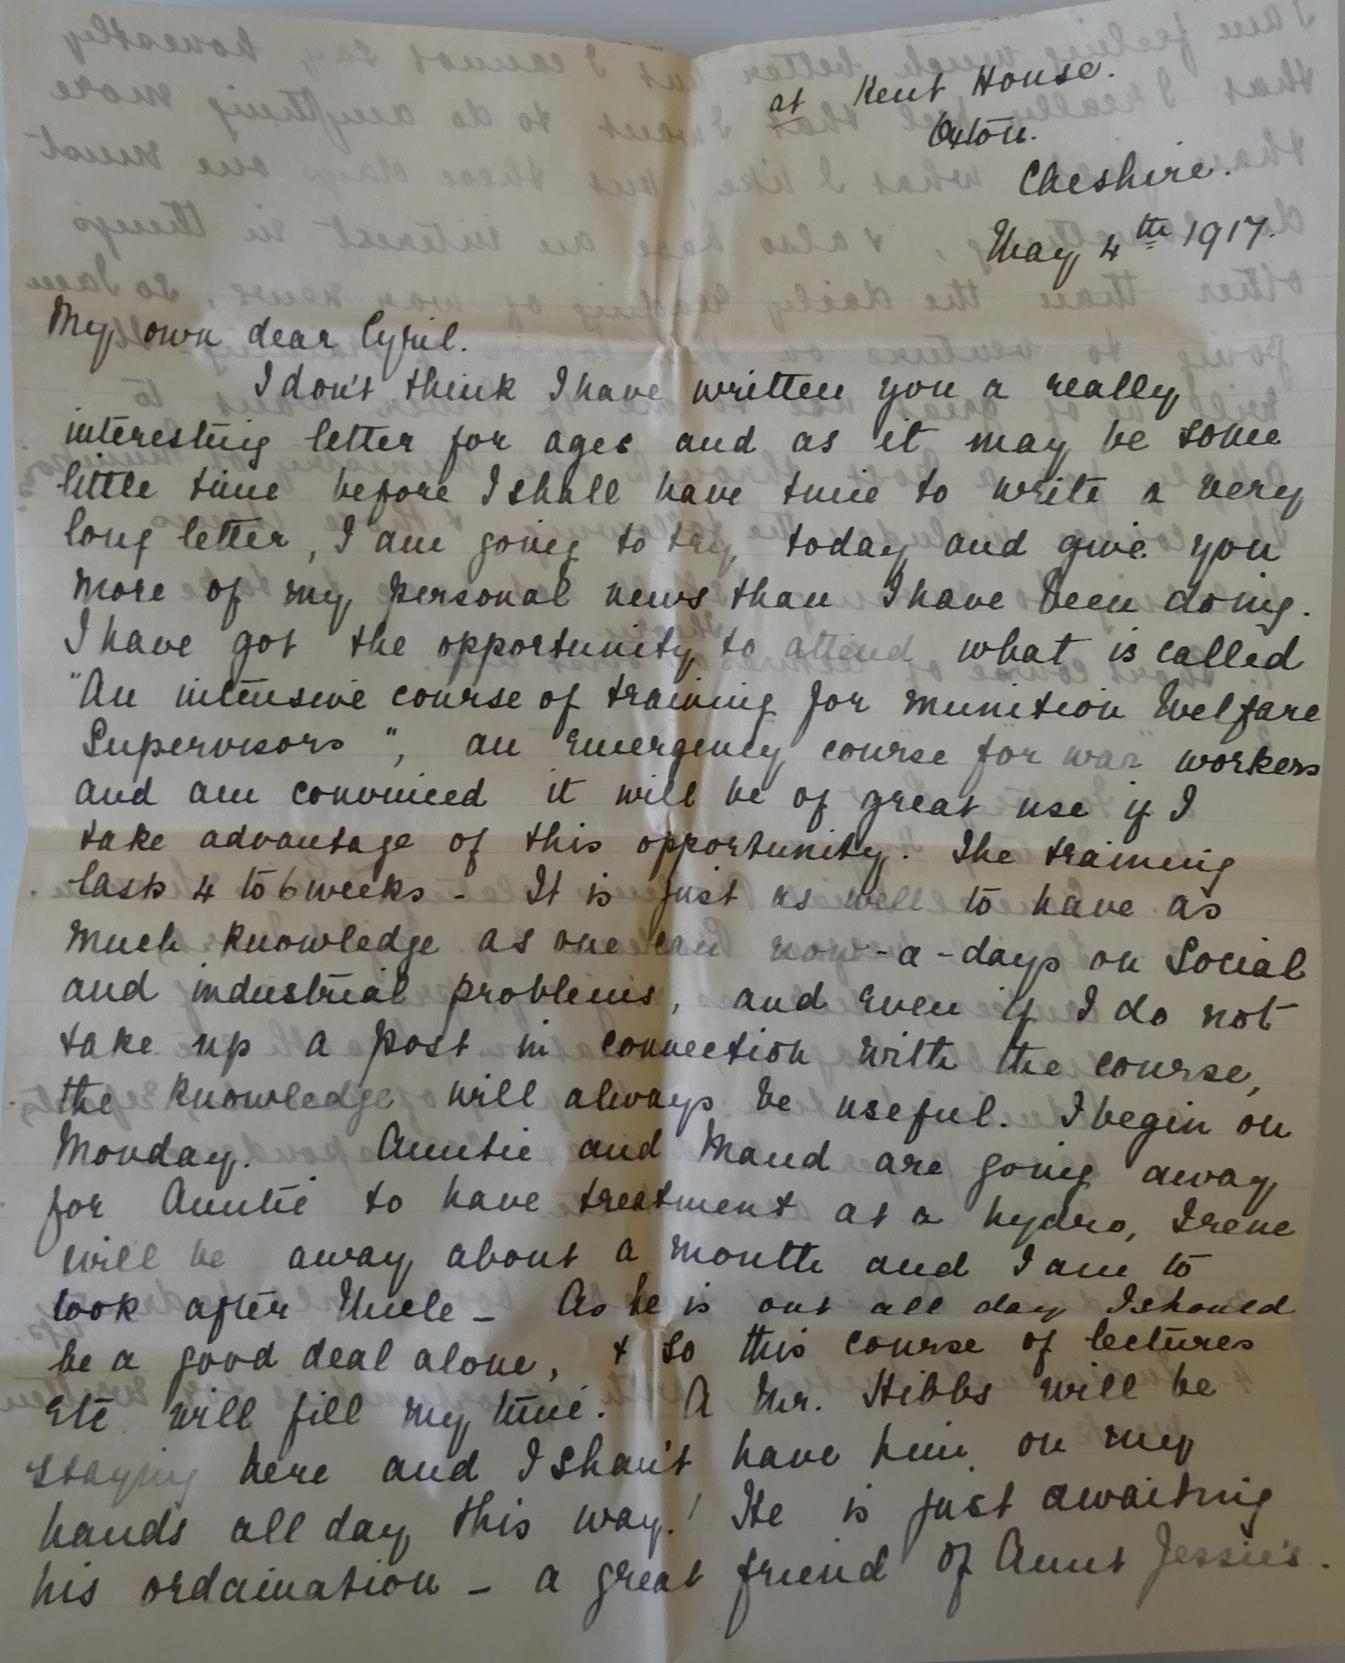 at Kent House.
Oxton.
Cheshire.
May 4th 1917.
My own dear Cyril.
I don't think I have written you a really
interesting letter for ages and as it may be some
little time before I shall have time to write a very
long letter, I am going to try today and give you
more of my personal news than I have been doing.
I have got the opportunity to attend what is called
"An intensive course of training for munition Welfare
Supervisors", an emergency course for war workers
and am convinced it will be of great use if I
take advantage of this opportunity. The training
lasts 4 to 6 weeks - It is just as well to have as
much knowledge as one can now-a-days on Social
and industrial problems, and even if I do not
take up a post in connection with the course,
the knowledge will always be useful. I begin on
Monday. Auntie and Maud are going away
for Auntie to have treatment at a hydro, Irene
will be away about a month and I am to
look after Uncle - As he is out all day I should
be a good deal alone, & so this course of lectures
etc will fill my time. A Mr. Hibbs will be
staying here and I shan't have him on my
hands all day this way! He is just awaiting
his ordaination - a great friend of Aunt Jessie's.